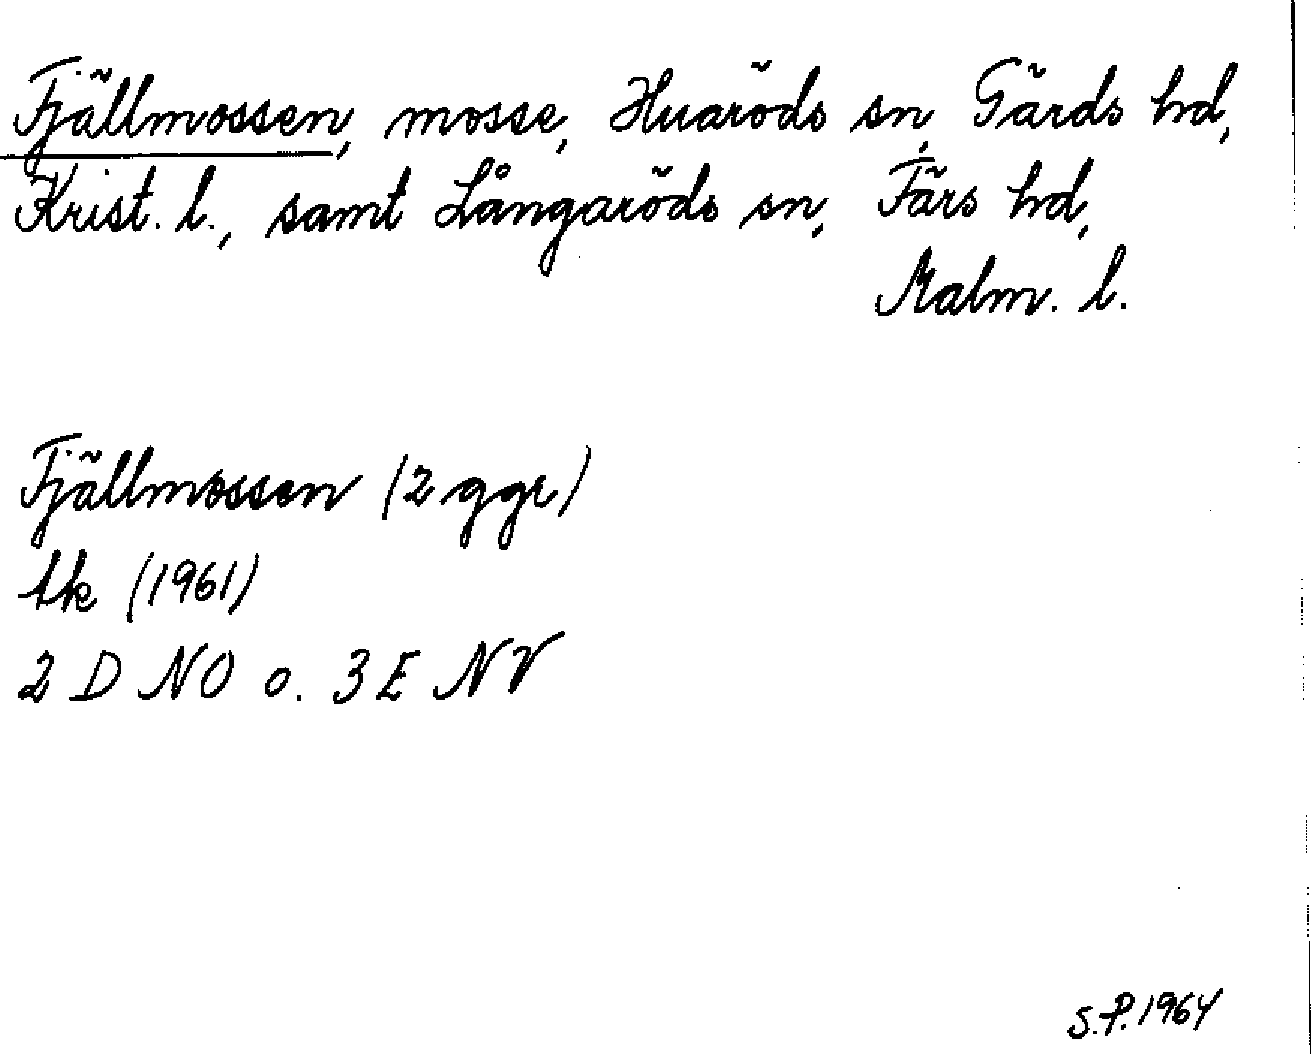 Fjällmossen, mosse, Huaröds sn, Gärds hd,
Krist. l., samt Långaröds sn, Färs hd,
Malm. l.
Fjällmossen (2 ggr)
tk (1961)
2 D NO o. 3 E NV
S.P. 1964